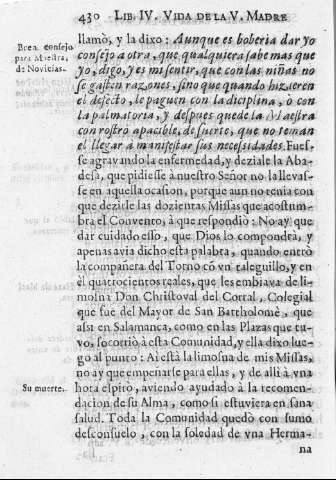 430 LIB. IV. VIDA DE LA V. MADRE
Buen consejo
para Maestra,
de Novicias.
llamò, y la dixo: Aunque es boberia dar yo
consejo a otra, que qualquiera sabe mas que
yo, digo, y es mi sentir, que con las niñas no
se gasten razones, sino que quando hizieren
el defecto, le paguen con la diciplina, ò con
la palmatoria, y despues quede la Maestra
con rostro apacible, de suerte, que no teman
el llegar à manifestar sus necesidades. Fues-
se agravando la enfermedad, y deziale la Aba-
desa, que pidiesse à nuestro Señor no la llevas-
se en aquella ocasion, porque aun no tenia con
que dezirle las dozientas Missas que acostum-
bra el Convento, à que respondiò: No ay que
dar cuidado esso, que Dios lo compondrà, y
apenas avia dicho esta palabra, quando entrò
la compañera del Torno cō vn taleguillo, y en
èl quatrocientos reales, que les embiava de li-
mosna Don Christoval del Corral, Colegial
que fue del Mayor de San Bartholomè, que
assi en Salamanca, como en las Plazas que tu-
vo, socorriò à esta Comunidad, y ella dixo lue-
go al punto: Ai està la limosna de mis Missas,
no ay que empeñarse para ellas, y de alli à vna
Su muerte.
hora espirò, aviendo ayudado à la recomen-
dacion de su Alma, como si estuviera en sana
salud. Toda la Comunidad quedò con sumo
desconsuelo, con la soledad de vna Herma-
na